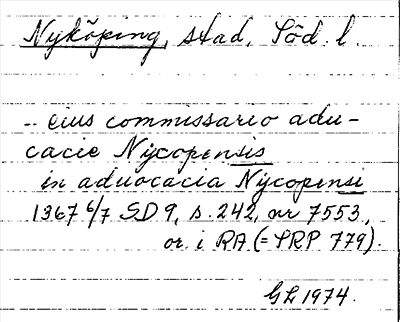 Nyköping, stad, Söd. l.
-- eius commissario adu-
cacie Nycopensis
in aduocacia Nycopensi
1367 6/7 SD 9, s. 242, nr 7553,
or. i RA (= SRP 779).
GL 1974.